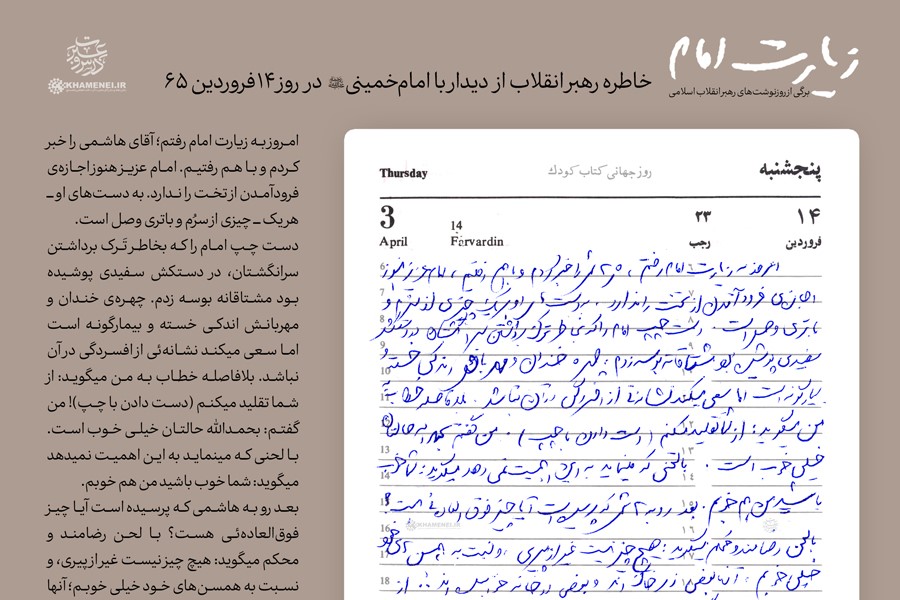 زیارت امام
برگی از روزنوشت‌های رهبر انقلاب اسلامی
خاطره رهبر انقلاب از دیدار با امام‌خمینی در روز ۱۴ فروردین ۶۵
KHAMENEI.IR
امـروز بـه زیارت امام رفتم؛ آقای هاشمی را خبر
کـردم و بـا هـم رفتیـم. امـام عزیـز هنوز اجازه‌ی
فرود آمـدن از تخت را نـدارد. به دسـت‌های او ــ
هر یک ــ چیزی از سرُم و باتری وصل است.
دسـت چـپ امـام را کـه بخاطـر تَـرک برداشـتن
سرانگشتان، در دستکش سفیدی پوشیده
بـود مشـتاقانه بوسـه زدم. چهـره‌ی خنـدان و
مهربانـش اندکـی خسـته و بیمارگونـه اسـت
امـا سـعی میکنـد نشـانه‌ئی از افسـردگی در آن
نباشـد. بلافاصلـه خطـاب بـه مـن میگویـد: از
شـما تقلید میکنـم (دسـت دادن با چـپ)! من
گفتـم: بحمـدالله حالتـان خیلـی خـوب اسـت.
بـا لحنـی کـه مینمایـد به ایـن اهمیـت نمیدهد
میگوید: شما خوب باشید من هم خوبم.
بعـد رو بـه هاشـمی کـه پرسـیده اسـت آیـا چیـز
فوق‌العاده‌ئـی هسـت؟ بـا لحـن رضامنـد و
محکم میگوید: هیچ چیز نیست غیر از پیری، و
نسـبت به همسـن‌های خـود خیلی خوبـم؛ آنها
Thursday
روز جهانی کتاب کودک
پنجشنبه
3 14 ۲۳ ۱۴
April Farvardin رجب فروردین
امروز به زیارت امام رفتم، را خبر کردم و با هم رفتیم، امام عزیز هنوز
اجازه‌ی فرود آمدن از تخت را ندارد. به دست‌های او هر یک چیزی از سرم و
باتری وصل است. دست چپ امام را که بخاطر ترک برداشتن سرانگشتان در دستکش
سفیدی پوشیده بود مشتاقانه بوسه زدم؛ چهره خندان و مهربانش اندکی خسته و
بیمارگونه است اما سعی میکند نشانه‌ئی از افسردگی در آن نباشد. بلافاصله خطاب به
من میگوید: از شما تقلید میکنم (دست دادن با چپ). من گفتم بحمدالله حالتان
خیلی خوب است. با لحنی که مینماید به این اهمیت نمی دهد میگوید: شما خوب
باشید من هم خوبم. بعد رو به که پرسیده است آیا چیز فوق العاده‌ئی هست؟
با لحن رضامند و محکم میگوید: هیچ چیز نیست غیر از پیری، و نسبت به همسن های خود
خیلی خوبم؛ آنها بعضی از
KHAMENEI.IR
6
7
8
9
10
13
14
16
18